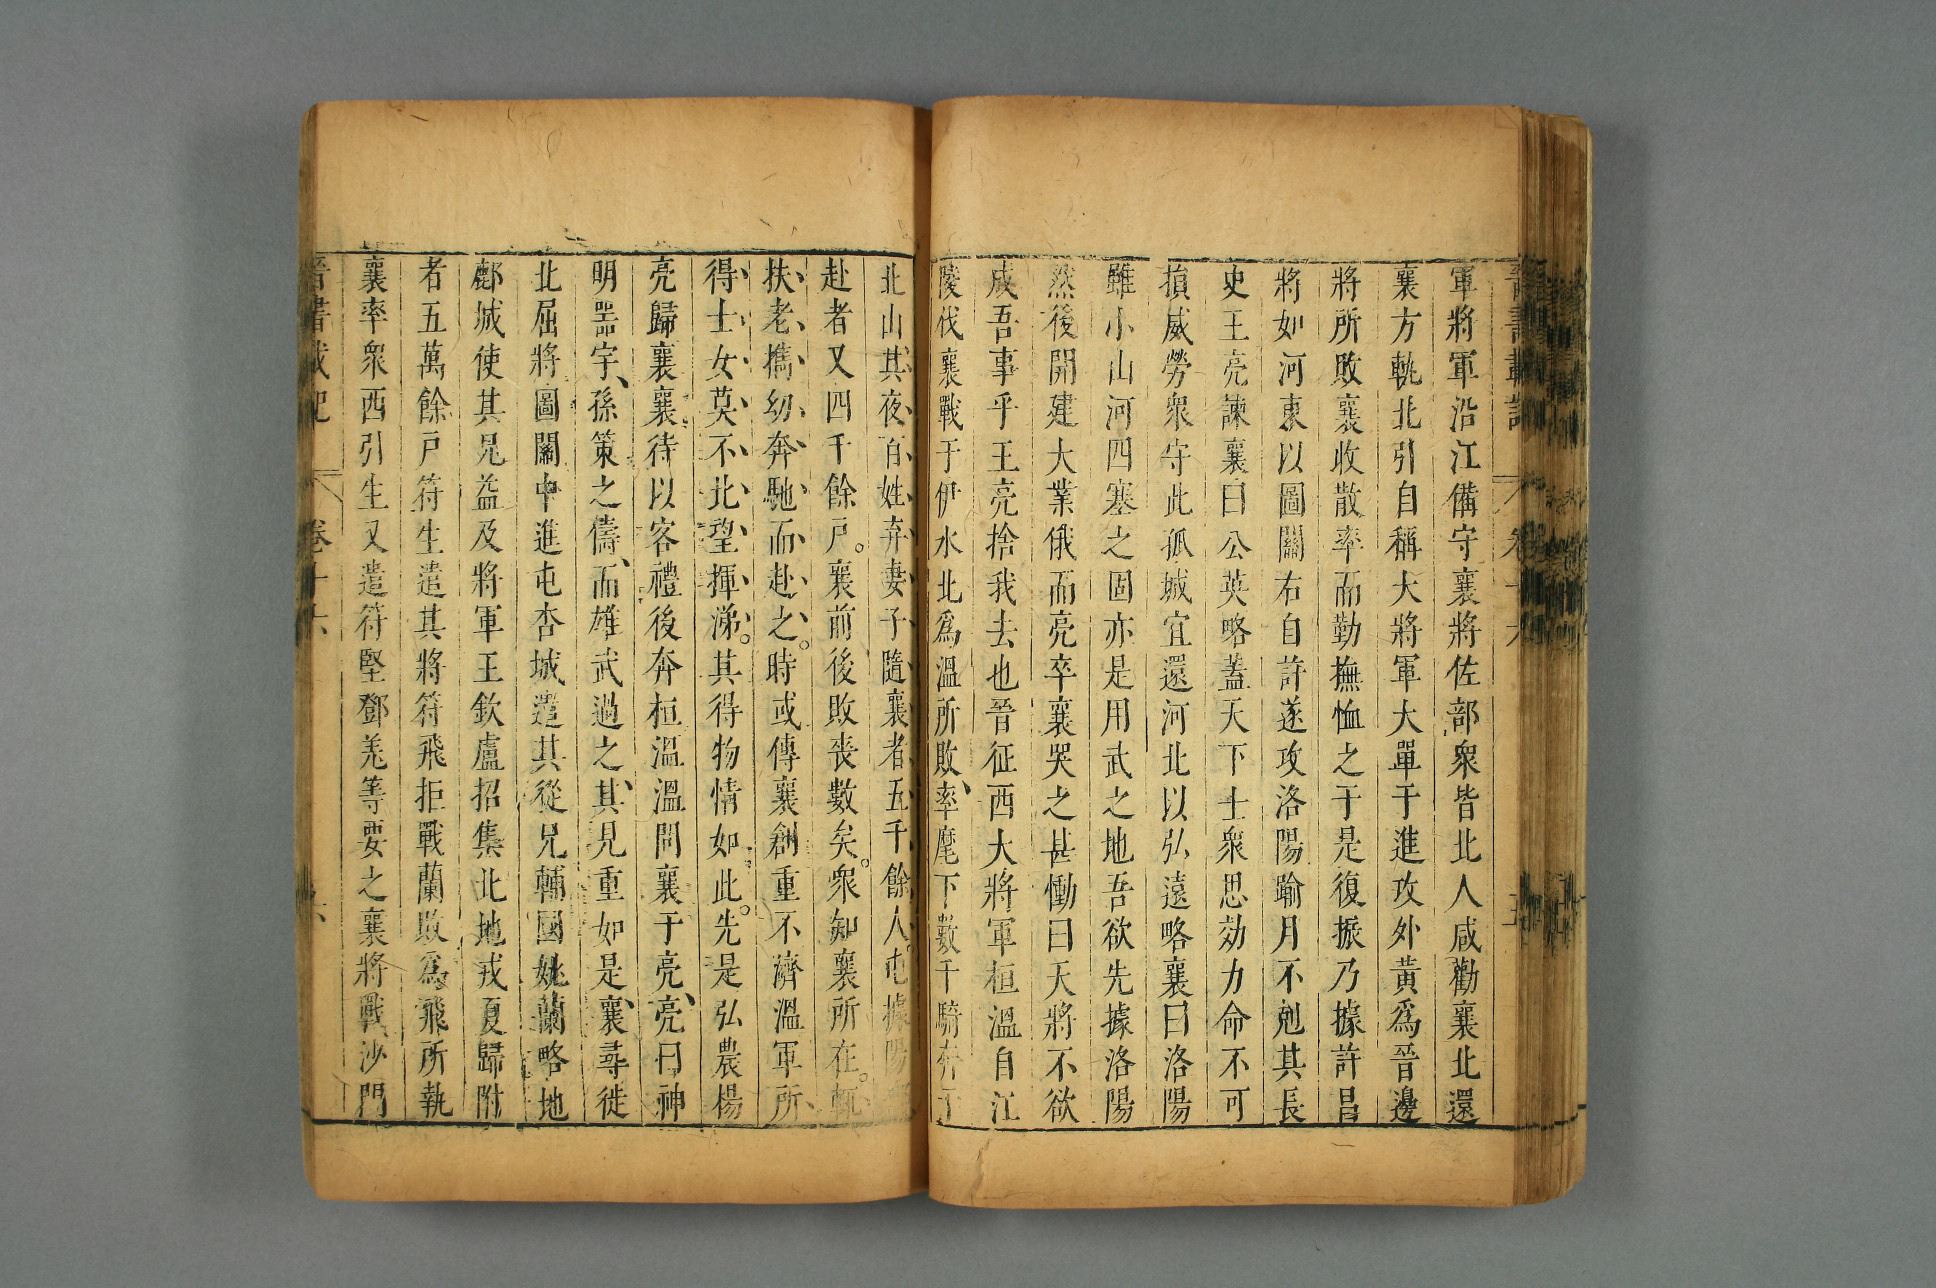 晉書載記 卷十六 五
軍將軍沿江備守襄將佐部衆皆北人咸勸襄北還
襄方軌北引自稱大將軍大單于進攻外黃爲晉邊
將所敗襄收散率而勤撫恤之于是復振乃據許昌
將如河東以圖關右自許遂攻洛陽踰月不剋其長
史王亮諫襄曰公英略蓋天下士衆思効力命不可
損威勞衆守此孤城宜還河北以弘遠略襄曰洛陽
雖小山河四塞之固亦是用武之地吾欲先據洛陽
然後開建大業俄而亮卒襄哭之甚慟曰天將不欲
成吾事乎王亮捨我去也晉征西大將軍桓溫自江
陵伐襄戰于伊水北爲溫所敗率麾下數千騎奔于
北山其夜百姓弃妻子隨襄者五千餘人屯據陽
赴者又四千餘戶襄前後敗喪數矣衆知襄所在輒
扶老擕幼奔馳而赴之時或傳襄創重不濟溫軍所
得士女莫不北望揮涕其得物情如此先是弘農楊
亮歸襄襄待以客禮後奔桓溫溫問襄于亮亮曰神
明器宇孫策之儔而雄武過之其見重如是襄尋徙
北屈將圖關中進屯杏城遣其從兄輔國姚蘭略地
鄜城使其兄益及將軍王欽盧招集北地戎夏歸附
者五萬餘戶苻生遣其將苻飛拒戰蘭敗爲飛所執
襄率衆西引生又遣苻堅鄧羌等要之襄將戰沙門
晉書載記 卷十六 六